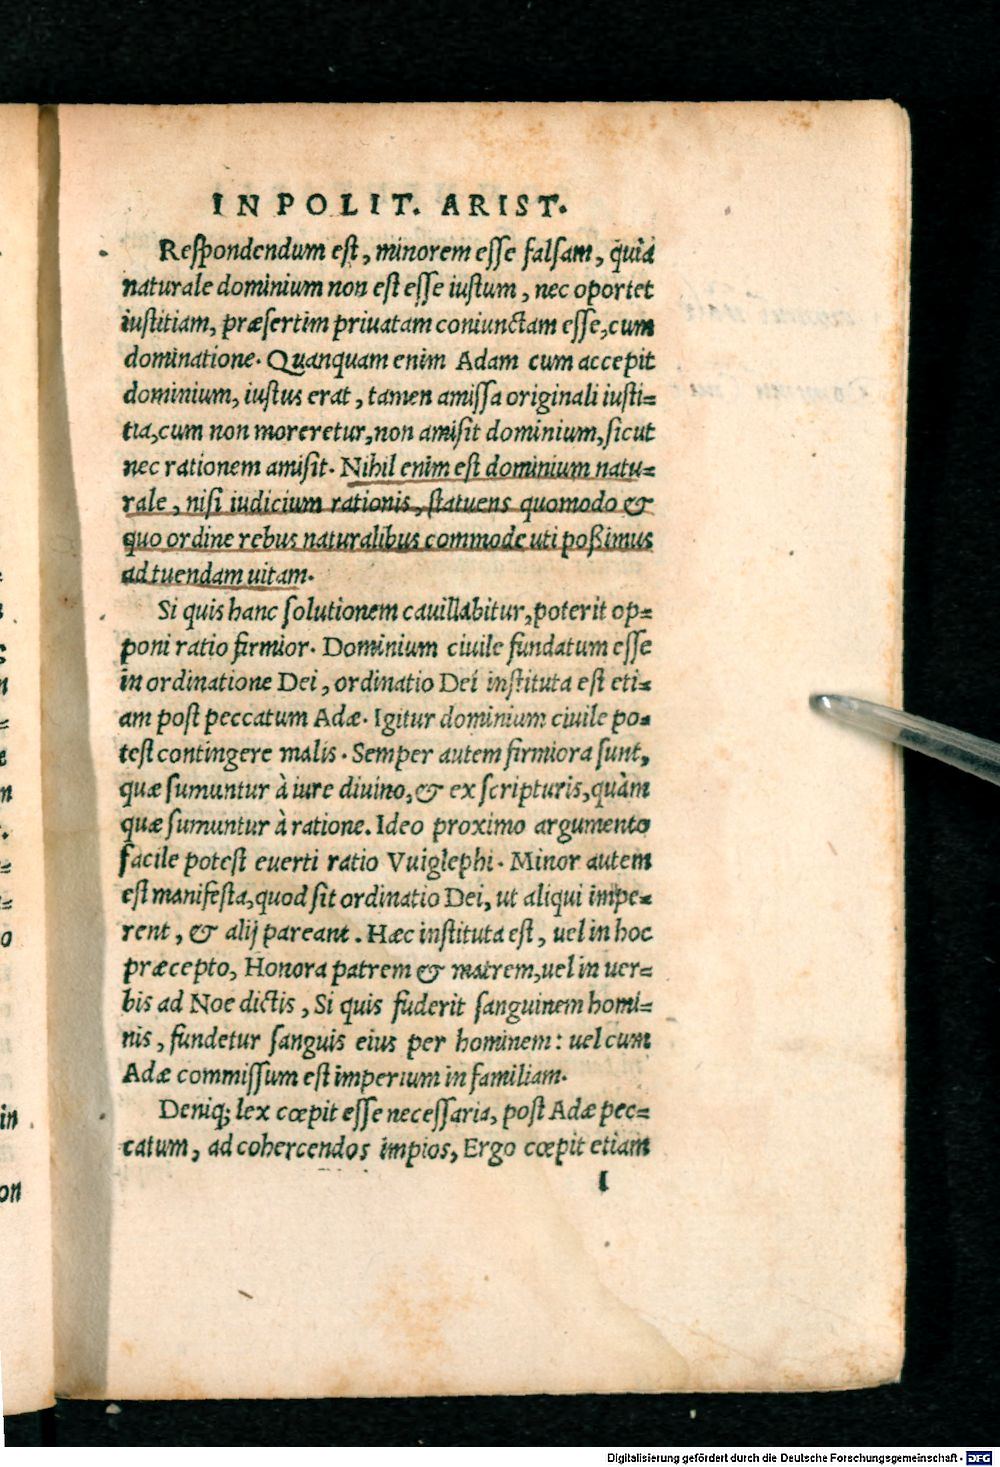 IN POLIT. ARIST.
Respondendum est, minorem esse falsam, quia
naturale dominium non est esse iustum, nec oportet
iustitiam, præsertim priuatam coniunctam esse, cum
dominatione. Quanquam enim Adam cum accepit
dominium, iustus erat, tamen amissa originali iusti=
tia, cum non moreretur, non amisit dominium, sicut
nec rationem amisit. Nihil enim est dominium natu=
rale, nisi iudicium rationis, statuens quomodo &
quo ordine rebus naturalibus commode uti poßimus
ad tuendam uitam.
Si quis hanc solutionem cauillabitur, poterit op=
poni ratio firmior. Dominium ciuile fundatum esse
in ordinatione Dei, ordinatio Dei instituta est eti=
am post peccatum Adæ. Igitur dominium ciuile po=
test contingere malis. Semper autem firmiora sunt,
quæ sumuntur à iure diuino, & ex scripturis, quàm
quæ sumuntur à ratione. Ideo proximo argumento
facile potest euerti ratio Vuiglephi. Minor autem
est manifesta, quod sit ordinatio Dei, ut aliqui impe=
rent, & alij pareant. Hæc instituta est, uel in hoc
præcepto, Honora patrem & matrem, uel in uer=
bis ad Noe dictis, Si quis fuderit sanguinem homi=
nis, fundetur sanguis eius per hominem: uel cum
Adæ commissum est imperium in familiam.
Deniq; lex cœpit esse necessaria, post Adæ pec=
catum, ad cohercendos impios, Ergo cœpit etiam
I
in
on
Digitalisierung gefördert durch die Deutsche Forschungsgemeinschaft - DFG